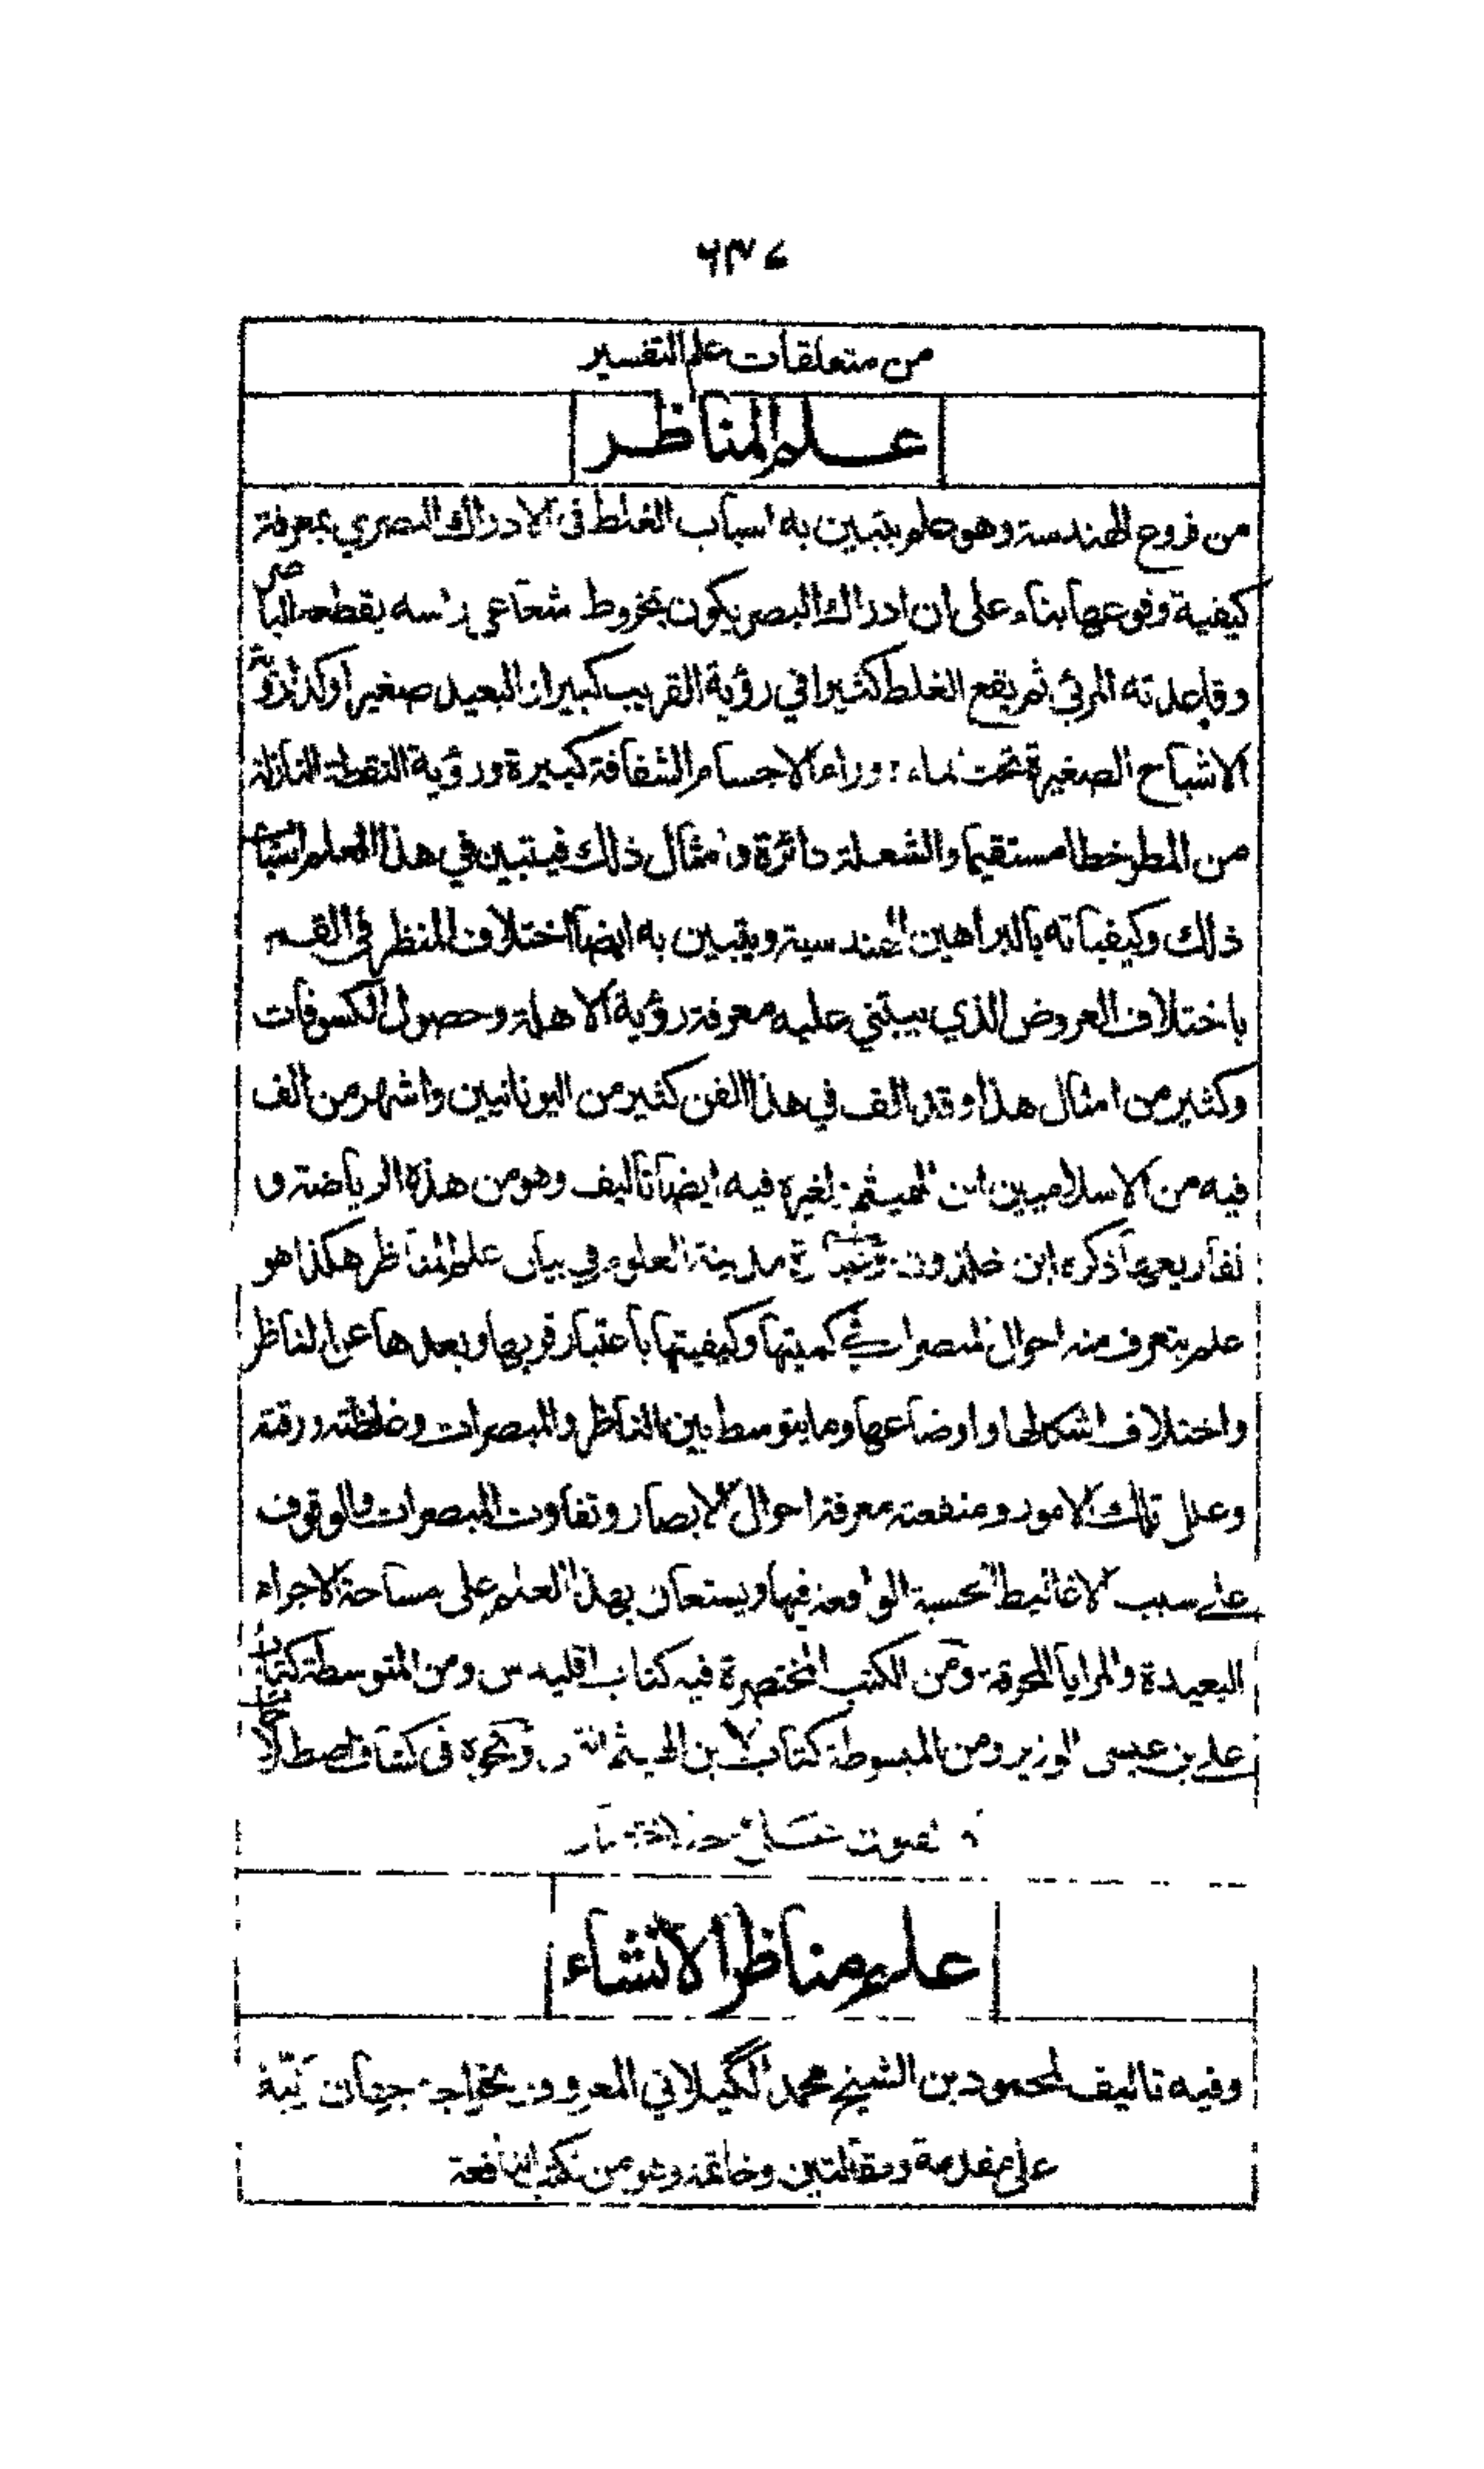 ٦٣٤
من متعلقات علم التفسير
علم المناظر
من فروع الهندسة وهو علم يتبين به اسباب الغلط فى الادراك البصري بمعرفة
كيفية وقوعها بناء على ان ادراك البصر يكون بمخروط شعاعي رأسه يقطعه الباصر
وقاعدته المرئي ثم يقع الغلط كثيرا في رؤية القريب كبيرا والبعيد صغيرا وكذا رؤية
الاشباح الصغيرة تحت الماء ووراء الاجسام الشفافة كبيرة ورؤية النقطة النازلة
من المطر خطا مستقيما والشعلة دائرة وامثال ذلك فيتبين في هذا العلم اسباب
ذلك وكيفياته بالبراهين الهندسية ويتبين به ايضا اختلاف المنظر في القمر
باختلاف العروض الذي يبتني عليه معرفة رؤية الاهلة وحصول الكسوفات
وكثير من امثال هذا وقد الف في هذا الفن كثير من اليونانيين واشهر من الف
فيه من الاسلاميين ابن الهيثم ولغيره فيه ايضا تاليف وهو من هذه الرياضة و
تفاريعها ذكره ابن خلدون مدينة العلوم في بيان علم المناظر هكذا هو
علم يتعرف منه احوال المبصرات في كميتها وكيفيتها باعتبار قربها وبعدها عن المناظر
واختلاف اشكالها واوضاعها وما يتوسط بين الناظر والمبصرات وغلظته ورقته
وعلل تلك الامور ومنفعته معرفة احوال الابصار وتفاوت المبصرات والوقوف
على سبب الاغاليط الحسية الواقعة فيها ويستعان بهذا العلم على مساحة الاجراء
البعيدة والمرايا المحرقة ومن الكتب المختصرة فيه كتاب اقليدس ومن المتوسطة كتاب
علي بن عيسى الوزير ومن المبسوطة كتاب لابن الهيثم ونحوه فى كشاف اصطلاحات
علم مناظر الانشاء
وفيه تاليف لمحمود بن الشيخ محمد الگيلاني المعروف بخواجه جهان رتبه
على مقدمة ومقالتين وخاتمة وهو من الكتب النافعة